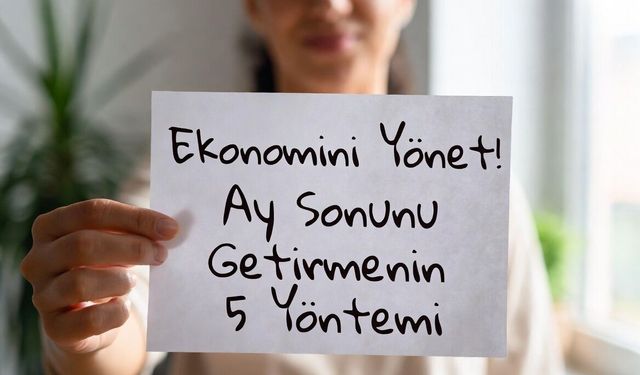 Ekonomini Yönet!
Ay Sonunu
Getirmenin
5 Yöntemi